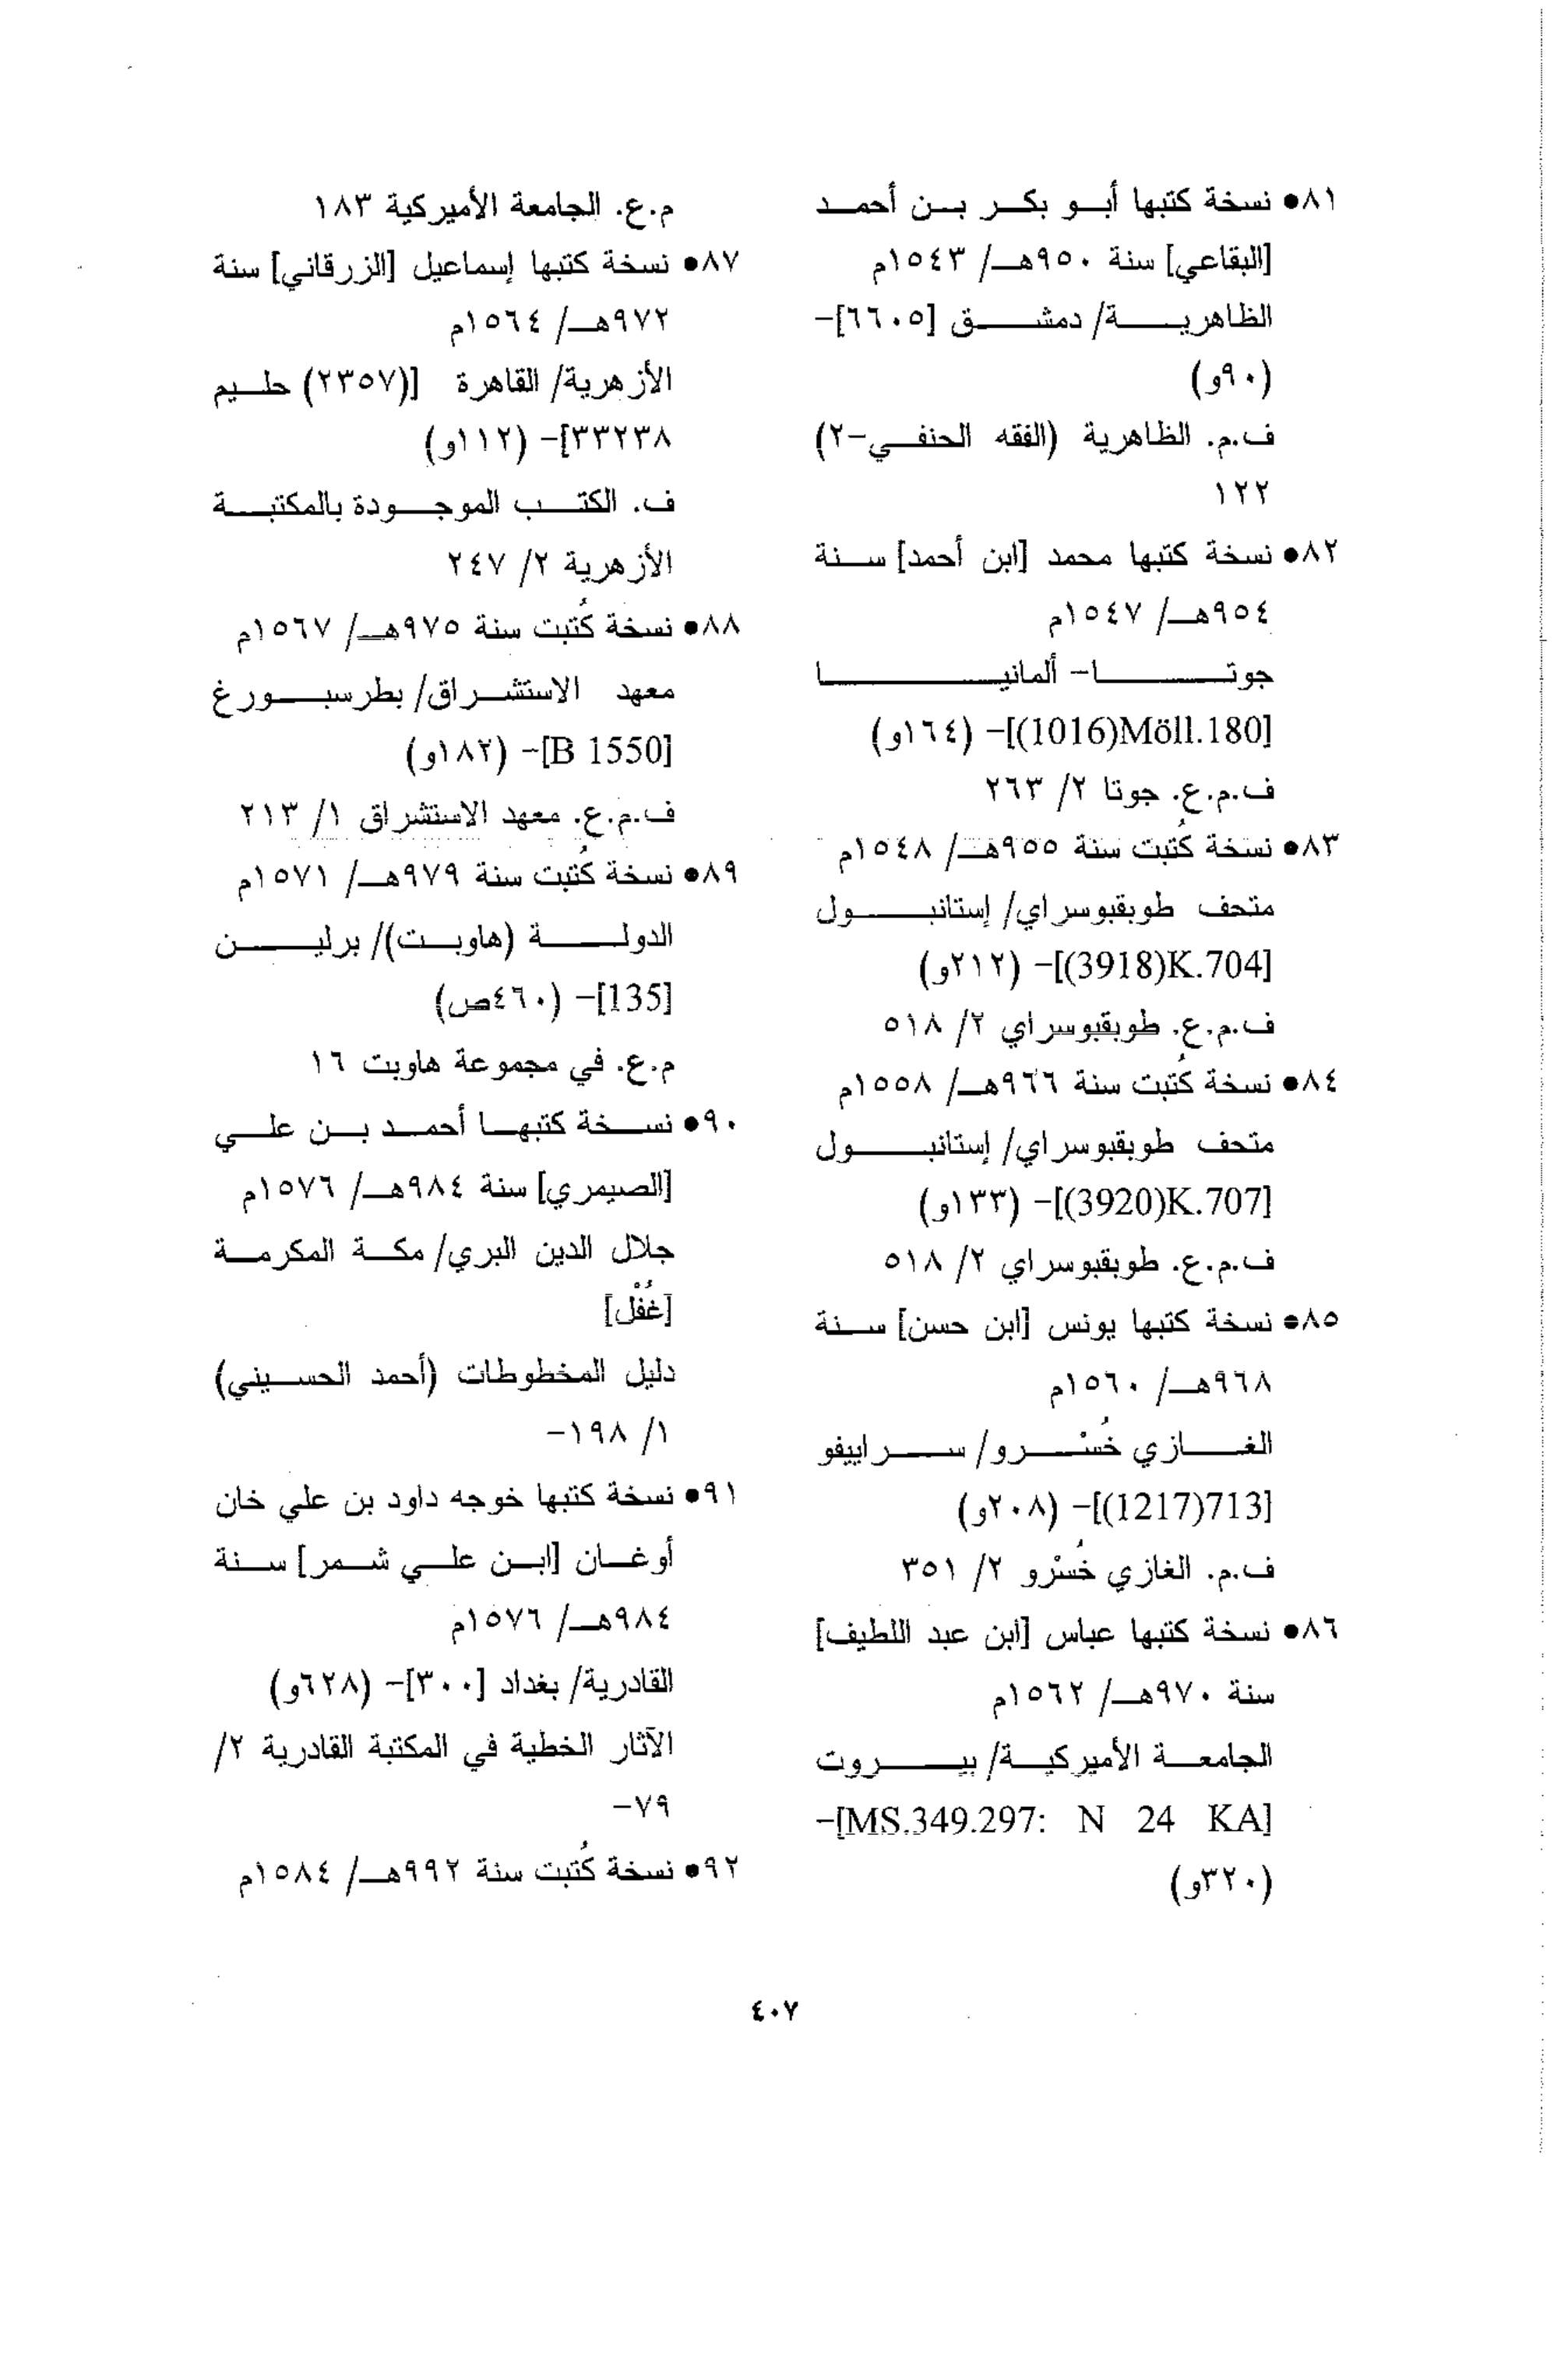 ٨١● نسخة كتبها أبو بكر بن أحمد
[البقاعي] سنة ٩٥٠هـ/ ١٥٤٣م
الظاهرية/ دمشق [٦٦٠٥]-
(٩٠و)
ف.م. الظاهرية (الفقه الحنفي-٢)
١٢٢
٨٢● نسخة كتبها محمد [ابن أحمد] سنة
٩٥٤هـ/ ١٥٤٧م
جوتا- ألمانيا
[1016)Möll.180)]- (١٦٤و)
ف.م.ع. جوتا ٢/ ٢٦٣
٨٣● نسخة كُتبت سنة ٩٥٥هـ/ ١٥٤٨م
متحف طوبقبوسراي/ إستانبول
[3918)K.704)]- (٢١٢و)
ف.م.ع. طوبقبوسراي ٢/ ٥١٨
٨٤● نسخة كُتبت سنة ٩٦٦هـ/ ١٥٥٨م
متحف طوبقبوسراي/ إستانبول
[3920)K.707)]- (١٣٣و)
ف.م.ع. طوبقبوسراي ٢/ ٥١٨
٨٥● نسخة كتبها يونس [ابن حسن] سنة
٩٦٨هـ/ ١٥٦٠م
الغازي خُسْرو/ سراييفو
[1217)713)]- (٢٠٨و)
ف.م. الغازي خُسْرو ٢/ ٣٥١
٨٦● نسخة كتبها عباس [ابن عبد اللطيف]
سنة ٩٧٠هـ/ ١٥٦٢م
الجامعة الأميركية/ بيروت
[MS.349.297: N 24 KA]-
(٣٢٠و)
م.ع. الجامعة الأميركية ١٨٣
٨٧● نسخة كتبها إسماعيل [الزرقاني] سنة
٩٧٢هـ/ ١٥٦٤م
الأزهرية/ القاهرة [(٢٣٥٧) حليم
٣٣٢٣٨]- (١١٢و)
ف. الكتب الموجودة بالمكتبة
الأزهرية ٢/ ٢٤٧
٨٨● نسخة كُتبت سنة ٩٧٥هـ/ ١٥٦٧م
معهد الاستشراق/ بطرسبورغ
[B 1550]- (١٨٢و)
ف.م.ع. معهد الاستشراق ١/ ٢١٣
٨٩● نسخة كُتبت سنة ٩٧٩هـ/ ١٥٧١م
الدولة (هاوبت)/ برلين
[135]- (٤٦٠ص)
م.ع. في مجموعة هاوبت ١٦
٩٠● نسخة كتبها أحمد بن علي
[الصيمري] سنة ٩٨٤هـ/ ١٥٧٦م
جلال الدين البري/ مكة المكرمة
[غُفْل]
دليل المخطوطات (أحمد الحسيني)
١/ ١٩٨-
٩١● نسخة كتبها خوجه داود بن علي خان
أوغان [ابن علي شمر] سنة
٩٨٤هـ/ ١٥٧٦م
القادرية/ بغداد [٣٠٠]- (٦٢٨و)
الآثار الخطية في المكتبة القادرية ٢/
٧٩-
٩٢● نسخة كُتبت سنة ٩٩٢هـ/ ١٥٨٤م
٤٠٧